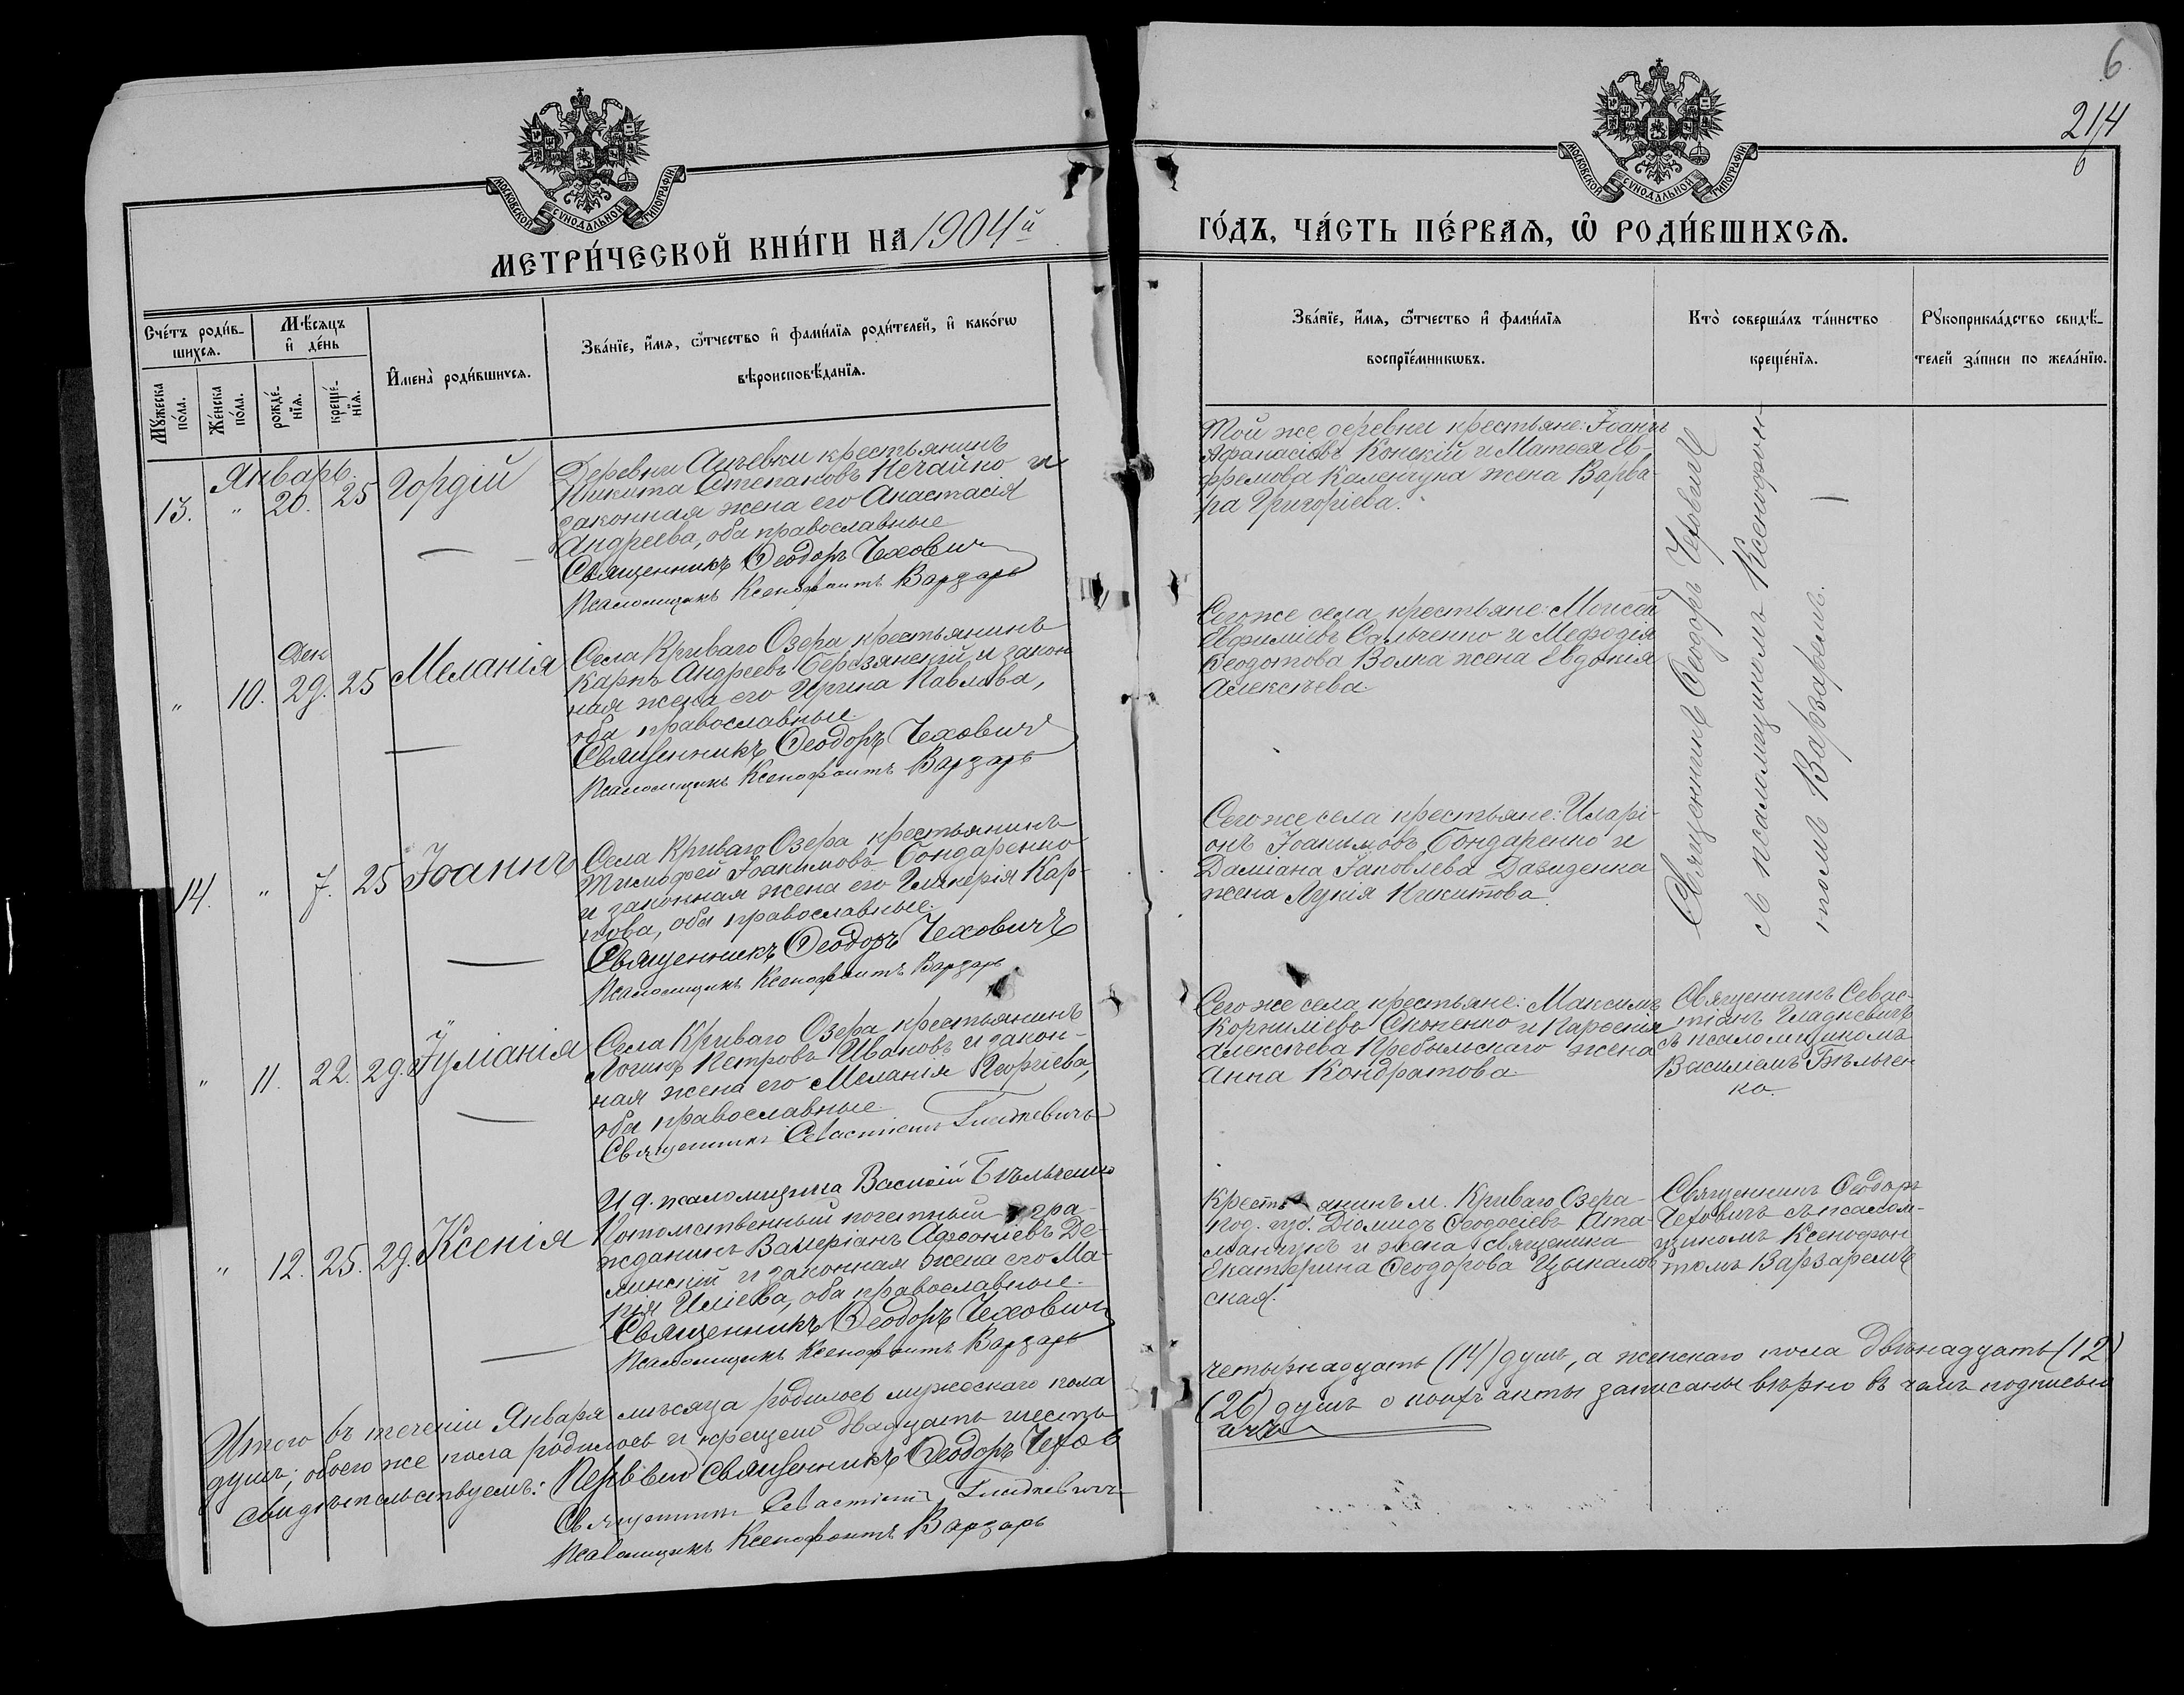 6
214
6
МОСКОВСКОЙ СУНОДАЛЬНОЙ ТИПОГРАФІИ
МОСКОВСКОЙ СУНОДАЛЬНОЙ ТИПОГРАФІИ
МЕТРИ́ЧЕСКОЙ КНИ́ГИ НА 1904й
ГО́ДЪ, ЧА́СТЬ ПЕ́РВАЯ, Ѡ҆ РОДИ́ВШИХСЯ.
Сче́тъ роди́в-
шихся.
Мꙋжеска по́ла.
Же́нска по́ла.
Мѣ́сяцъ и҆ де́нь
рожде́-
нїя.
креще́-
нїя.
И҆мена̀ роди́вшихся.
Зва́нїе, и҆́мя, ѻ҆́тчество и҆ фами́лїя роди́телей, и҆ како́гѡ
вѣроисповѣ́данїя.
Зва́нїе, и҆́мя, ѻ҆́тчество и҆ фами́лїя
воспрїе́мникѡвъ.
Кто̀ соверша́лъ та́инство
креще́нїя.
Рꙋкоприкла́дство свидѣ́-
телей за́писи по жела́нїю.
Январь.
13. " 20. 25 Гордій
Деревни крестьянинъ
Никита Степановъ Нечайно и
законная жена его Анастасія
Андреева, оба православные
Священникъ Ѳеодоръ Чеховичъ
Псаломщикъ Ксенофонтъ Варзарь
Той же деревни крестьяне: Іоаннъ
Афанасіевъ Конскій и Матѳея Ев-
фремова Каленчука жена Варва-
ра Григоріева.
Священникъ Ѳеодоръ Чеховичъ
съ псаломщикомъ Ксенофон-
томъ Варзаремъ.
Дек
" 10. 29. 25 Меланія
Села Криваго Озера крестьянинъ
Карпъ Андреевъ Березянскій и закон
ная жена его Ирина Павлова,
оба православные
Священникъ Ѳеодоръ Чеховичъ
Псаломщикъ Ксенофонтъ Варзарь
Сего же села крестьяне: Моисей
Евфиміевъ Сальченко и Меѳодія
Ѳеодотова Волка жена Евдокія
Алексѣева.
14. " 7. 25 Іоаннъ
Села Криваго Озера крестьянинъ
Тимофей Іоакимовъ Бондаренко
и законная жена его Гликерія Кар-
пова, оба православные.
Священникъ Ѳеодоръ Чеховичъ
Псаломщикъ Ксенофонтъ Варзарь
Сего же села крестьяне: Иларі-
онъ Іоакимовъ Бондаренко и
Даміана Іаковлева Давиденка
жена Лукія Никитова.
" 11. 22. 29. Іуліанія
Села Криваго Озера крестьянинъ
Логинъ Петровъ Ивановъ и закон-
ная жена его Меланія Георгіева,
оба православные
Священникъ Севастіанъ Гладкевичъ
И д. псаломщика Василій Бѣльченко
Сего же села крестьяне: Максимъ
Корниліевъ Сконенко и Парѳенія
Алексѣева Пребыльскаго жена
Анна Кондратова.
Священникъ Севас-
тіанъ Гладкевичъ
съ псаломщикомъ
Василіемъ Бѣльчен-
ко.
" 12. 25. 29. Ксенія
Потомственный почетный гра-
жданинъ Валеріанъ Афоніевъ Де-
минскій и законная жена его Ма-
рія Иліева, оба православные.
Священникъ Ѳеодоръ Чеховичъ
Псаломщикъ Ксенофонтъ Варзарь
Крестьянинъ м. Криваго Озера
Под. губ. Діомидъ Ѳеодосіевъ Ата-
манчукъ и жена священика
Екатерина Ѳеодорова Цыкалов
ская.
Священникъ Ѳеодоръ
Чеховичъ съ псалом-
щикомъ Ксенофон
томъ Варзаремъ
Итого въ теченіи Января мѣсяца родилось мужескаго пола
четырнадцать (14) душъ, а женскаго пола двѣнадцать (12)
душъ; обоего же пола родилось и крещено двадцать шесть
(26) душъ о коихъ акты записаны вѣрно въ чемъ подписью
свидѣтельствуемъ: Первый Священникъ Ѳеодоръ Чехов
ичъ
Священникъ Севастіанъ Гладкевичъ
Псаломщикъ Ксенофонтъ Варзарь